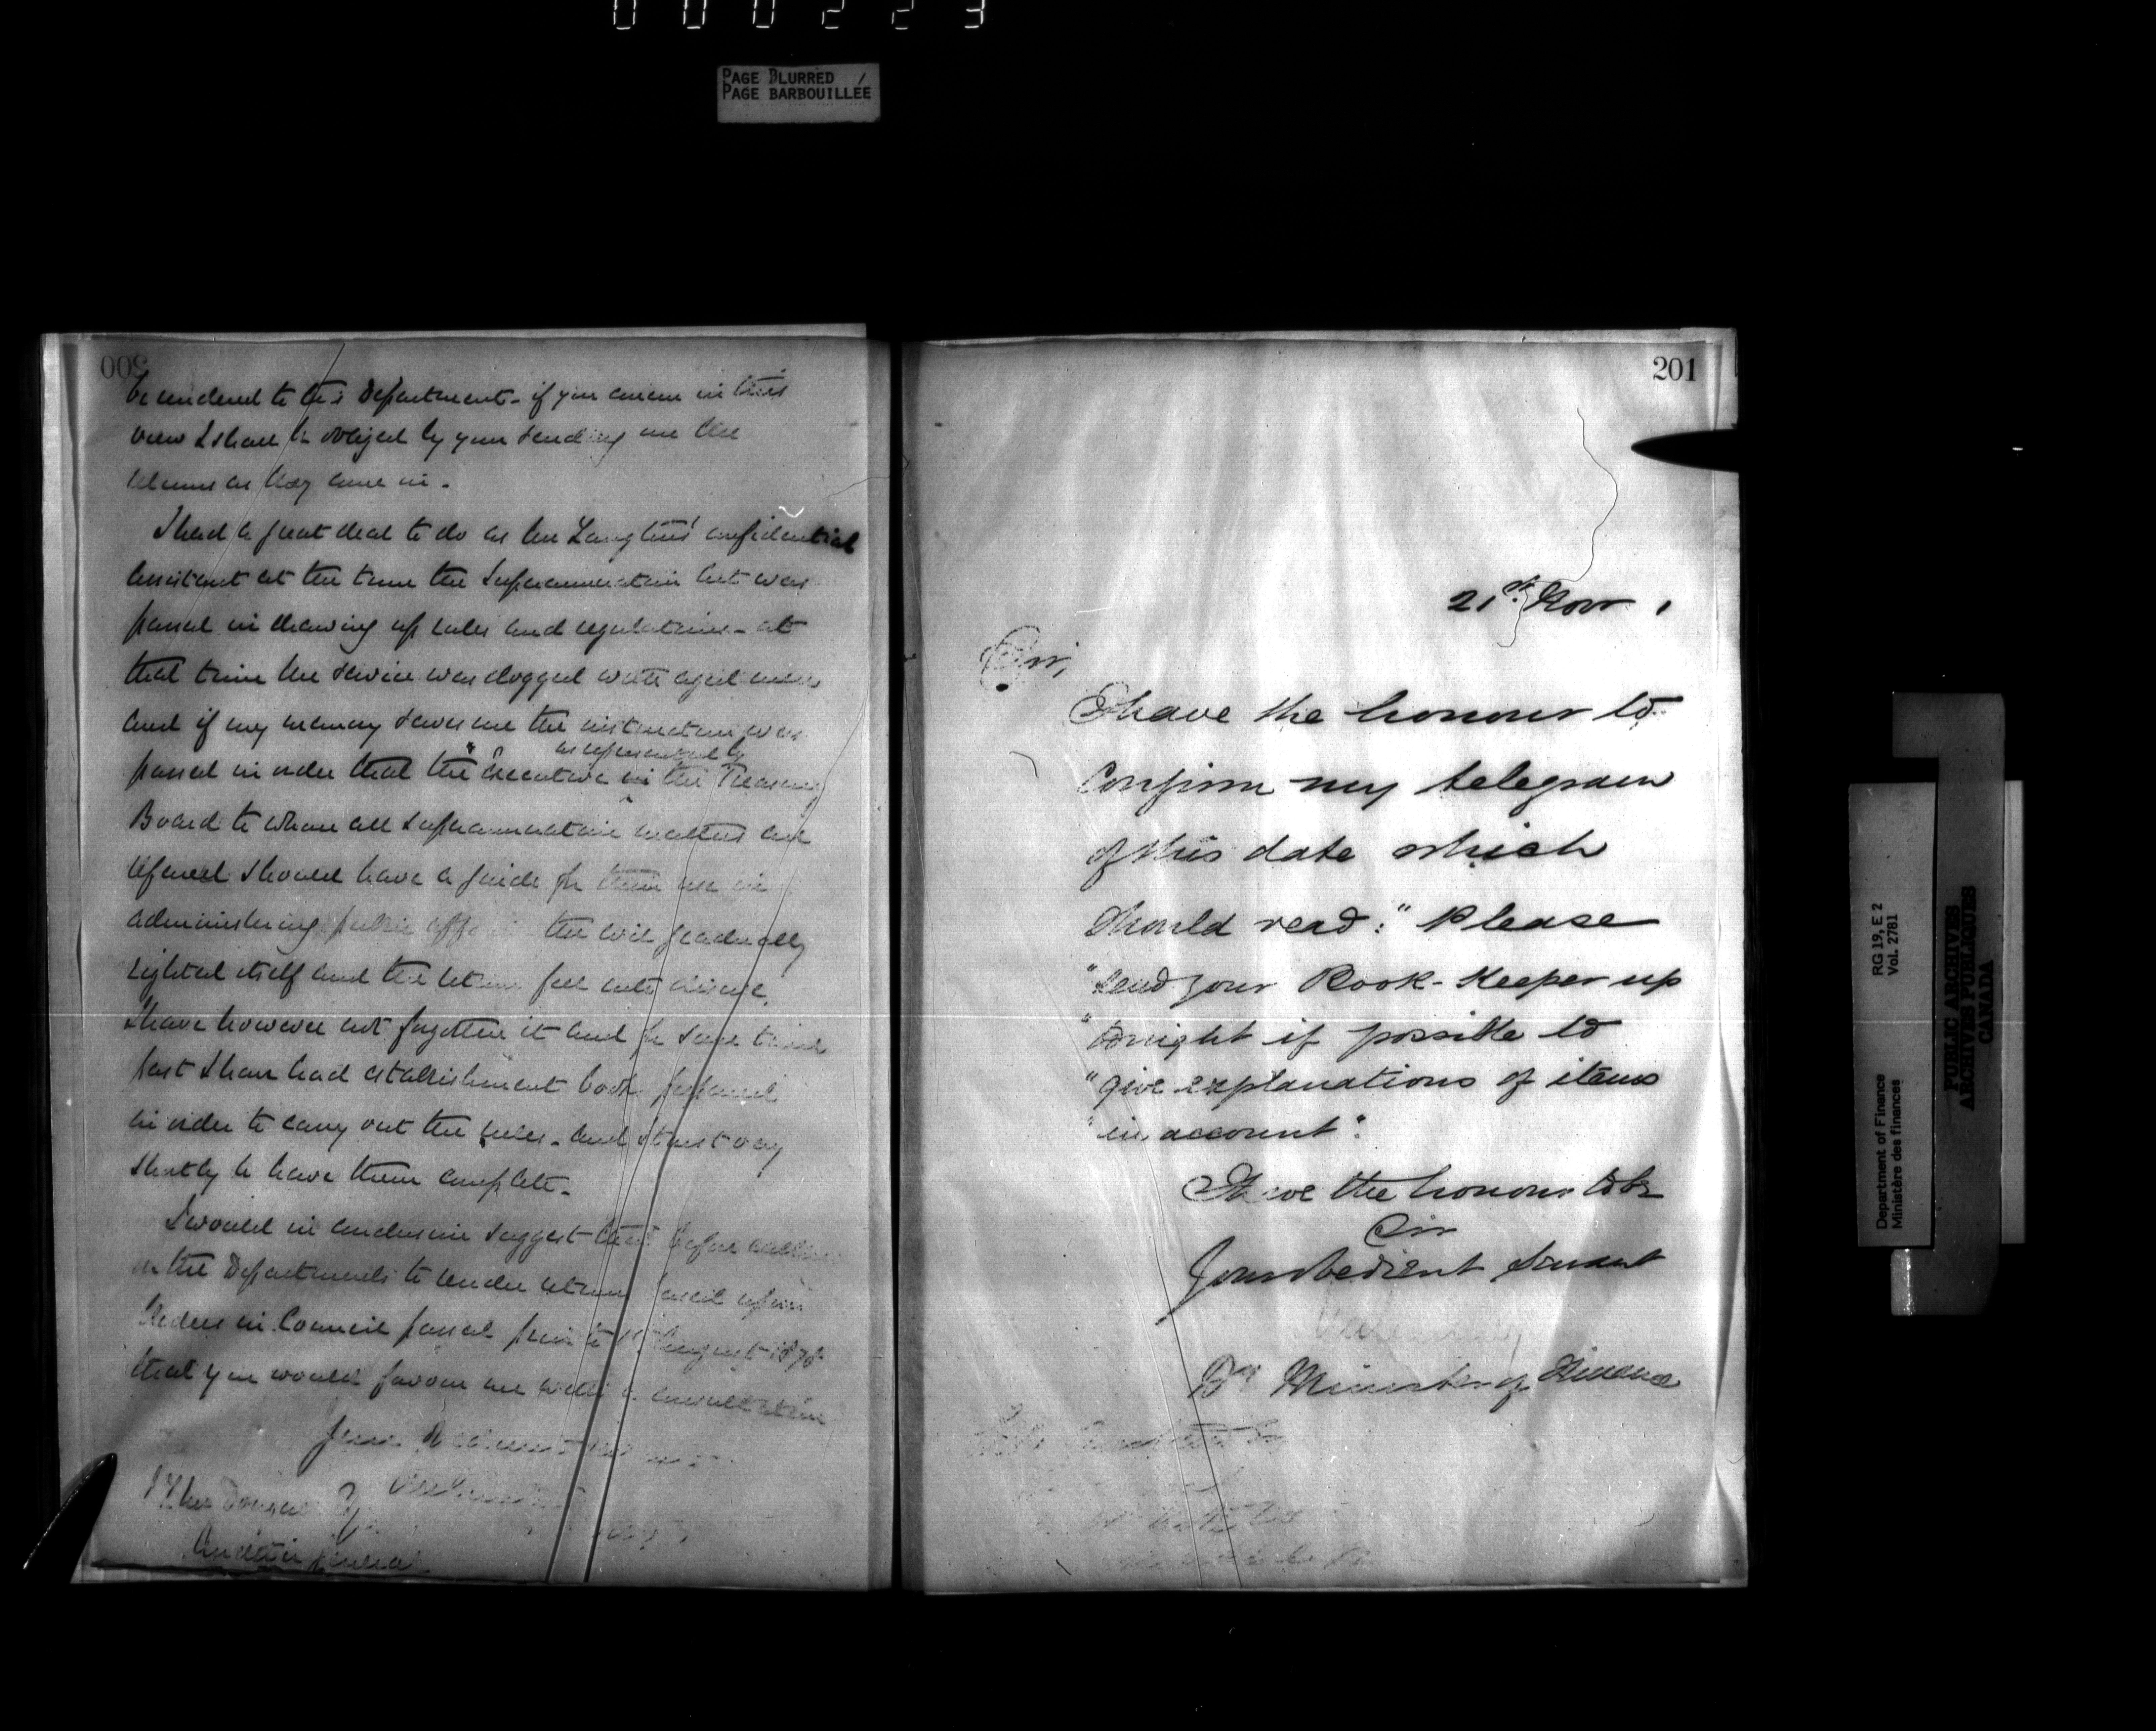 000223
PAGE BLURRED
PAGE BARBOUILLÉE
200
be rendered to this Department - if you concur in this
view I shall be obliged by your sending me the
returns as they come in.
I had a great deal to do as Mr Langton's confidential
Assistant at the time the Superannuation Act was
passed in drawing up rules and regulations - at
that time the service was clogged with aged men
and if my memory serves me the instruction was
as represented by
passed in order that the Executive in the Treasury
Board to whom all Superannuation matters are
referred should have a guide for their use in
administering public the evil gradually
righted itself and the return fell into disuse.
I have however not forgotten it and for some time
past I have had establishment books prepared
in order to carry out the rules - and trust very
shortly to have them complete.
I would in conclusion suggest that before calling
on the Departments to render returns based upon
Orders in Council passed prior to 1st August 1878
that you would favour me with a consultation
J. L. McDougall Esq
Auditor General
201
21st. Nov
Sir,
I have the honour to
Confirm my telegram
of this date which
Should read: "Please
"send your Book-Keeper up
"tonight if possible to
"give explanations of items
"in account".
I have the honour to be
Sir
Your obedient Servant
Dy Minister of Finance
RG 19, E 2
Vol. 2781
Department of Finance
Ministère des finances
PUBLIC ARCHIVES
ARCHIVES PUBLIQUES
CANADA